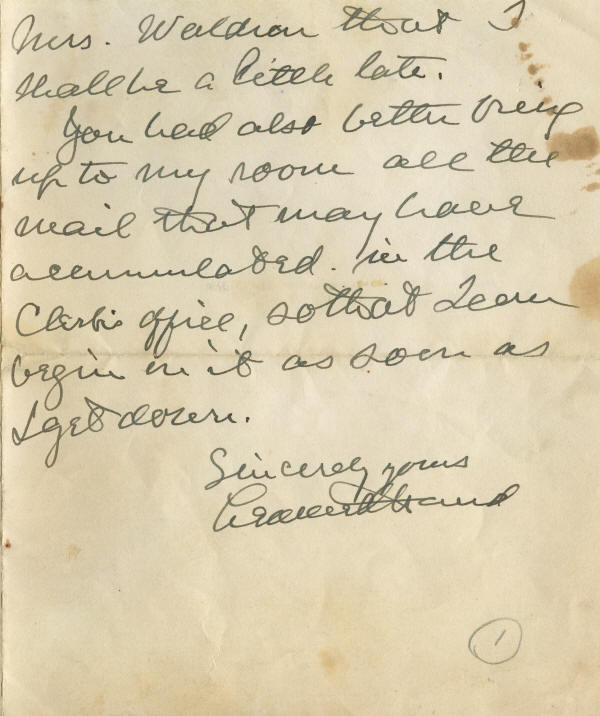 Mrs. Waldron that I
shall be a little late.
You had also better bring
up to my room all the
mail that may have
accumulated. in the
Clerk's office, so that I can
begin on it as soon as
I get down.
Sincerely yours
Learned Hand
1